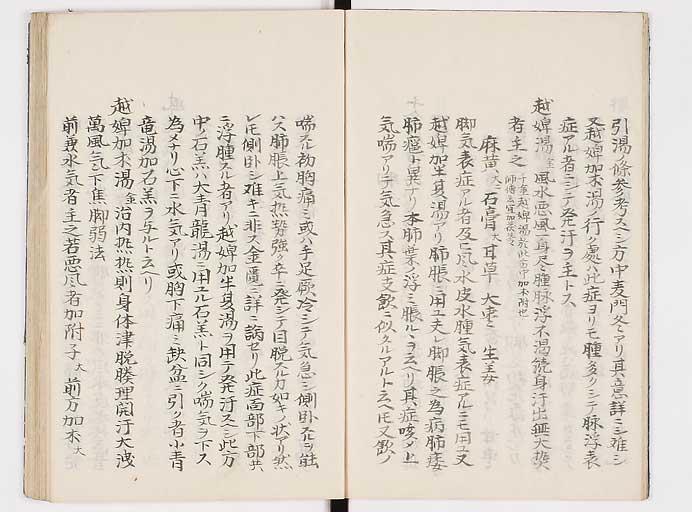 引湯ノ條參考スベシ方中麦門冬アリ其意詳ニシ難シ
又越婢加朮湯ノ行ク處ハ此症ヨリモ腫多クシテ脉浮表
症アル者ニシテ発汗ヲ主トス
越婢湯 金 風水悪風一身尽ク腫脉浮不渇続自汗出無大熱
者主之
麻黄 大 石膏 大 甘草 大棗 生姜
脚気表症アル者及ヒ風水皮水腫気表症アルニモ用ユ又
越婢加半夏湯アリ肺脹ニ用ユ夫レ肺脹之為病肺痿
肺癰ト異ナリ本肺葉ノ浮ミ脹ルヽヲ云ヘリ其症咳シ上
気喘アリテ気急ス其症支飲ニ似タルアルト云ヘ圧又飲ノ
喘スル初胸痛ミ或ハ手足厥冷シテ気急シ側臥スルヿ能
ハス肺脹上気熱勢強ク卒ニ発シテ目脱スル如キノ状アリ然
レ圧側臥シ難キニ非ス金匱ニ詳ニ論セリ此症面部下部共
ニ浮腫スル者アリ越婢加半夏湯ヲ用テ発汗スベシ此方
中ノ石羔ハ大青龍湯ニ用ユル石羔ト同シク喘気ヲ下ス
為メナリ心下ニ水気アリ或胸下痛ミ缺盆ニ引ク者小青
竜湯加石羔ヲ与ルト云ヘリ
越婢加朮湯 金 治内熱熱則身体津脱腠理開汗大泄
萬風気下焦脚弱法
前兼水気者主之若悪風者加附子 大 前方加朮 大